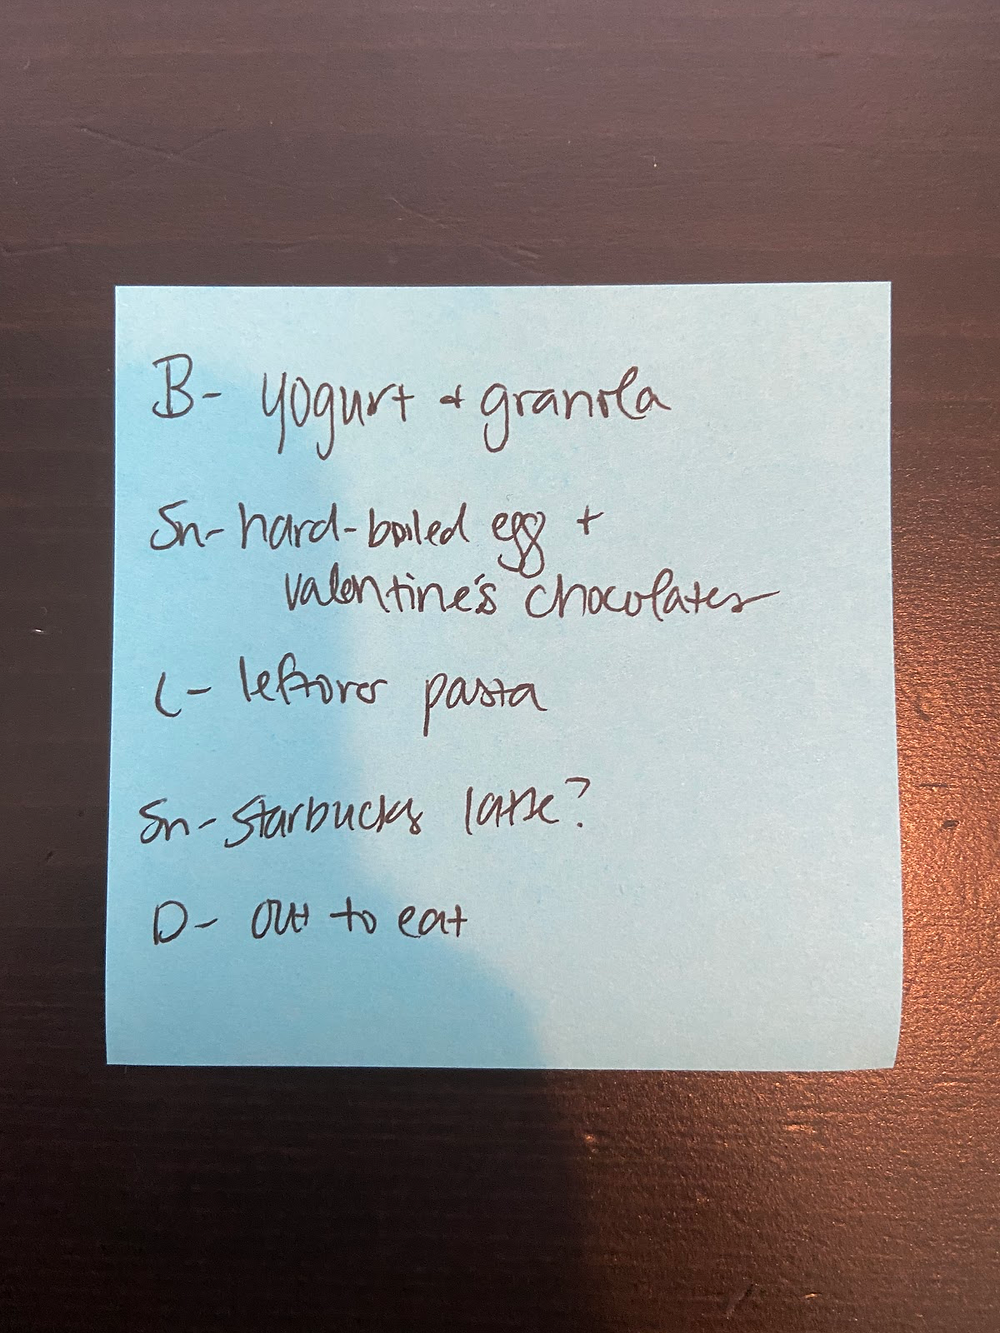 B- yogurt + granola
Sn- hard-boiled egg +
valentine's chocolates
L- leftover pasta
Sn- starbucks latte?
D- out to eat